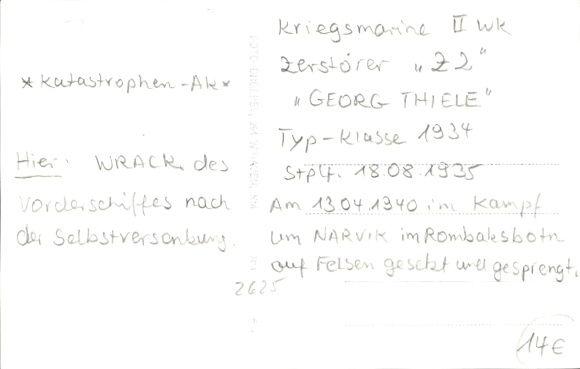 *Katastrophen-Ak*
Hier: WRACK des
Vorderschiffes nach
der Selbstversenkung.
Kriegsmarine II WK
Zerstörer „Z2"
„GEORG THIELE"
Typ-Klasse 1934
Stplf. 18.08.1935
Am 13.04.1940 im Kampf
um NARVIK im Rombaksbotn
auf Felsen gesetzt und gesprengt.
2625
14€